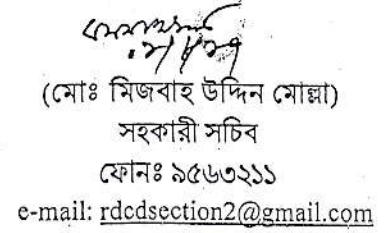 (মোঃ মিজবাহ উদ্দিন মোল্লা)
সহকারী সচিব
ফোনঃ ৯৫৬৩২১১
e-mail: rdcdsection2@gmail.com